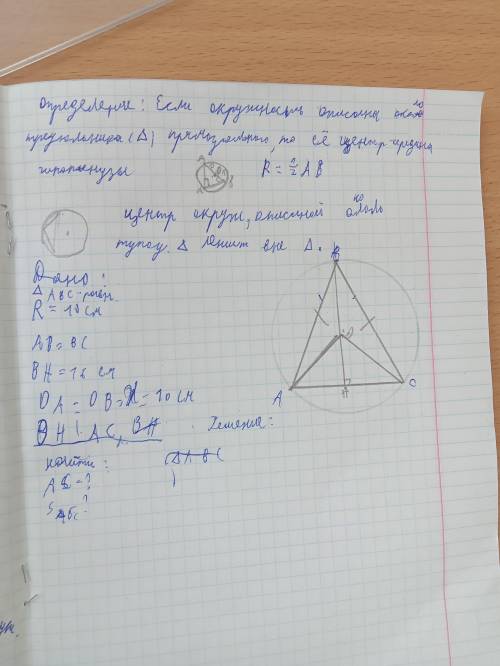 Определение: Если окружность описана около
треугольника (Δ) прямоугольного, то её центр середина
гипотенузы
R = 1/2 AB
центр окруж, описанной около
тупоу. Δ лежит вне Δ.
Дано:
Δ ABC - равн.
R = 10 см
AB = BC
BH = 16 см
OA = OB = = 10 см
OH ⊥ AC, BH
Решение:
найти:
AC = ?
S ABC ?
ΔABC
1
B
O
A
H
C